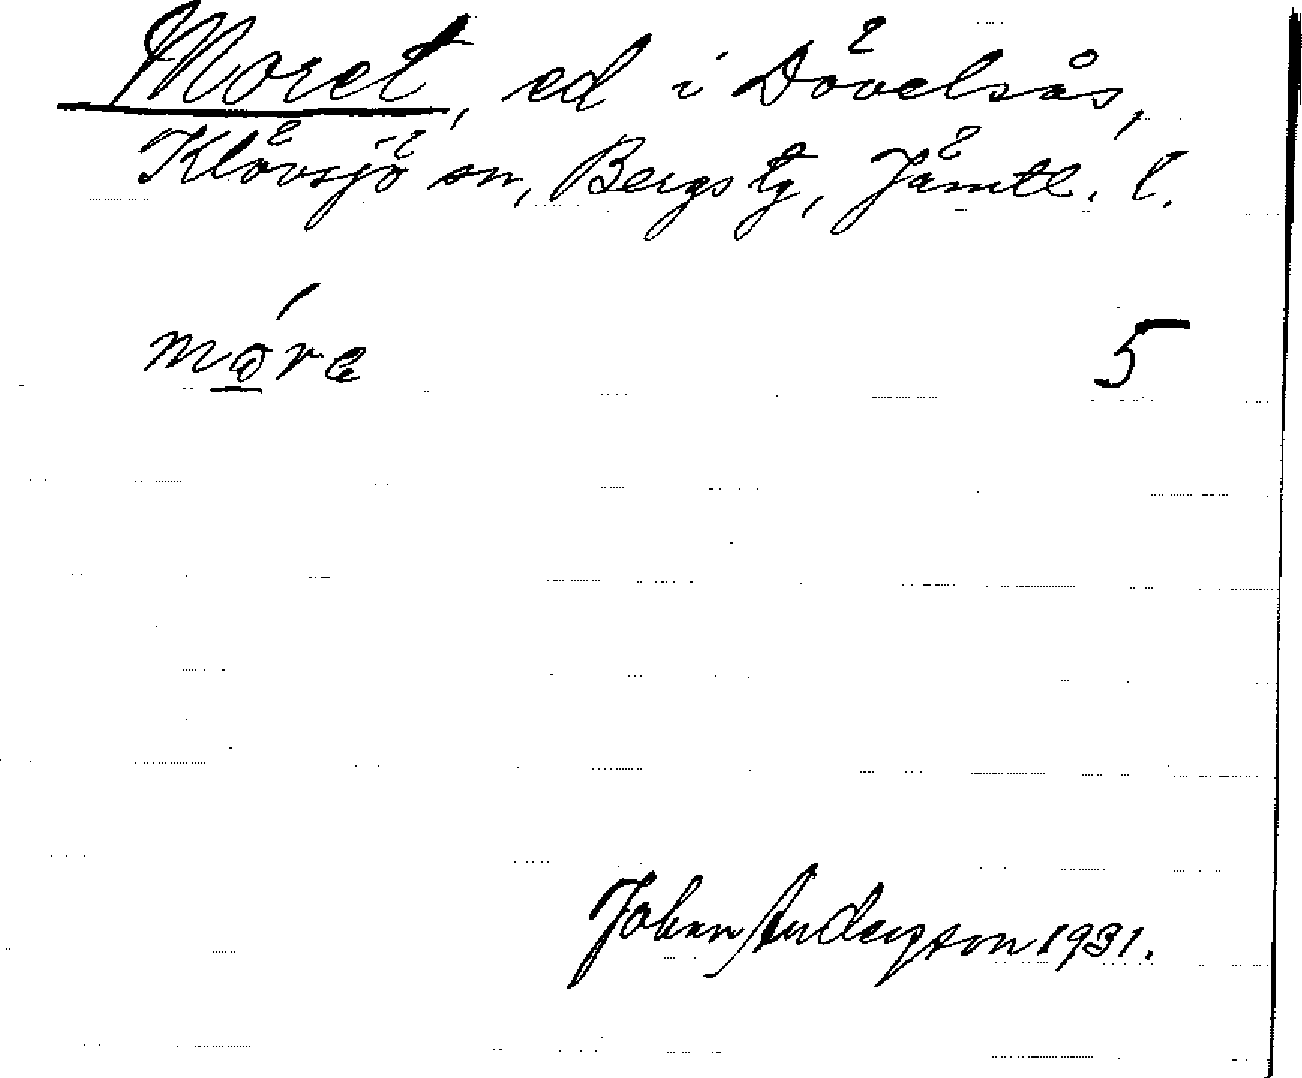 Moret, ed i Dövelsås,
Klövsjö sn, Bergs tg, Jämtl. l.
móre 5
Johan Anderson 1931.